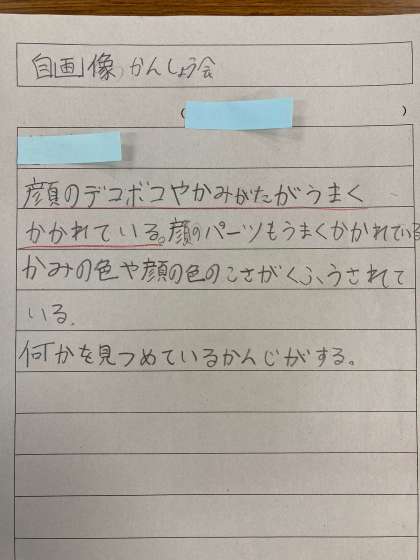 自画像、かんしょう会
(　　　)
顔のデコボコやかみがたがうまく
かかれている。顔のパーツもうまくかかれている
かみの色や顔の色のこさがくふうされて
いる。
何かを見つめているかんじがする。